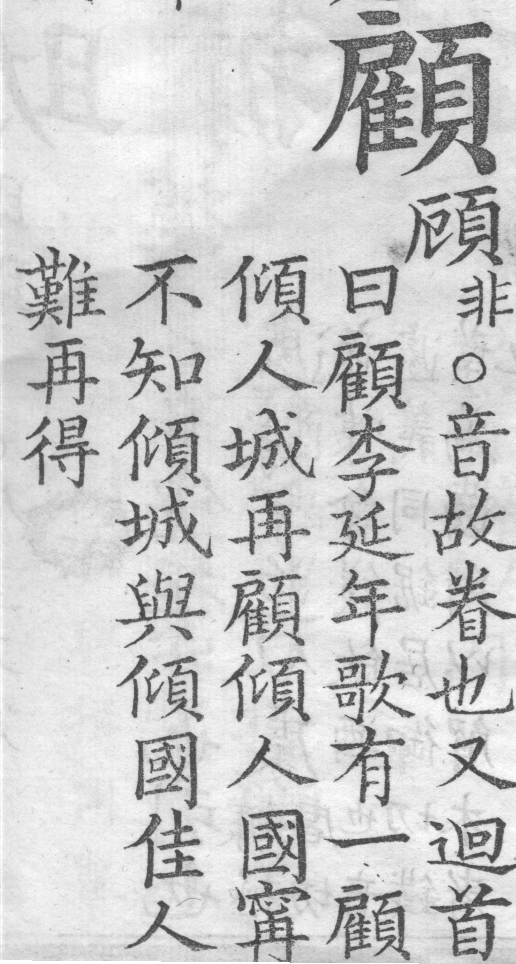 顧
顾非○音故眷也又迴首
曰顧李延年歌有一顧
傾人城再顧傾人國寗
不知傾城與傾國佳人
難再得